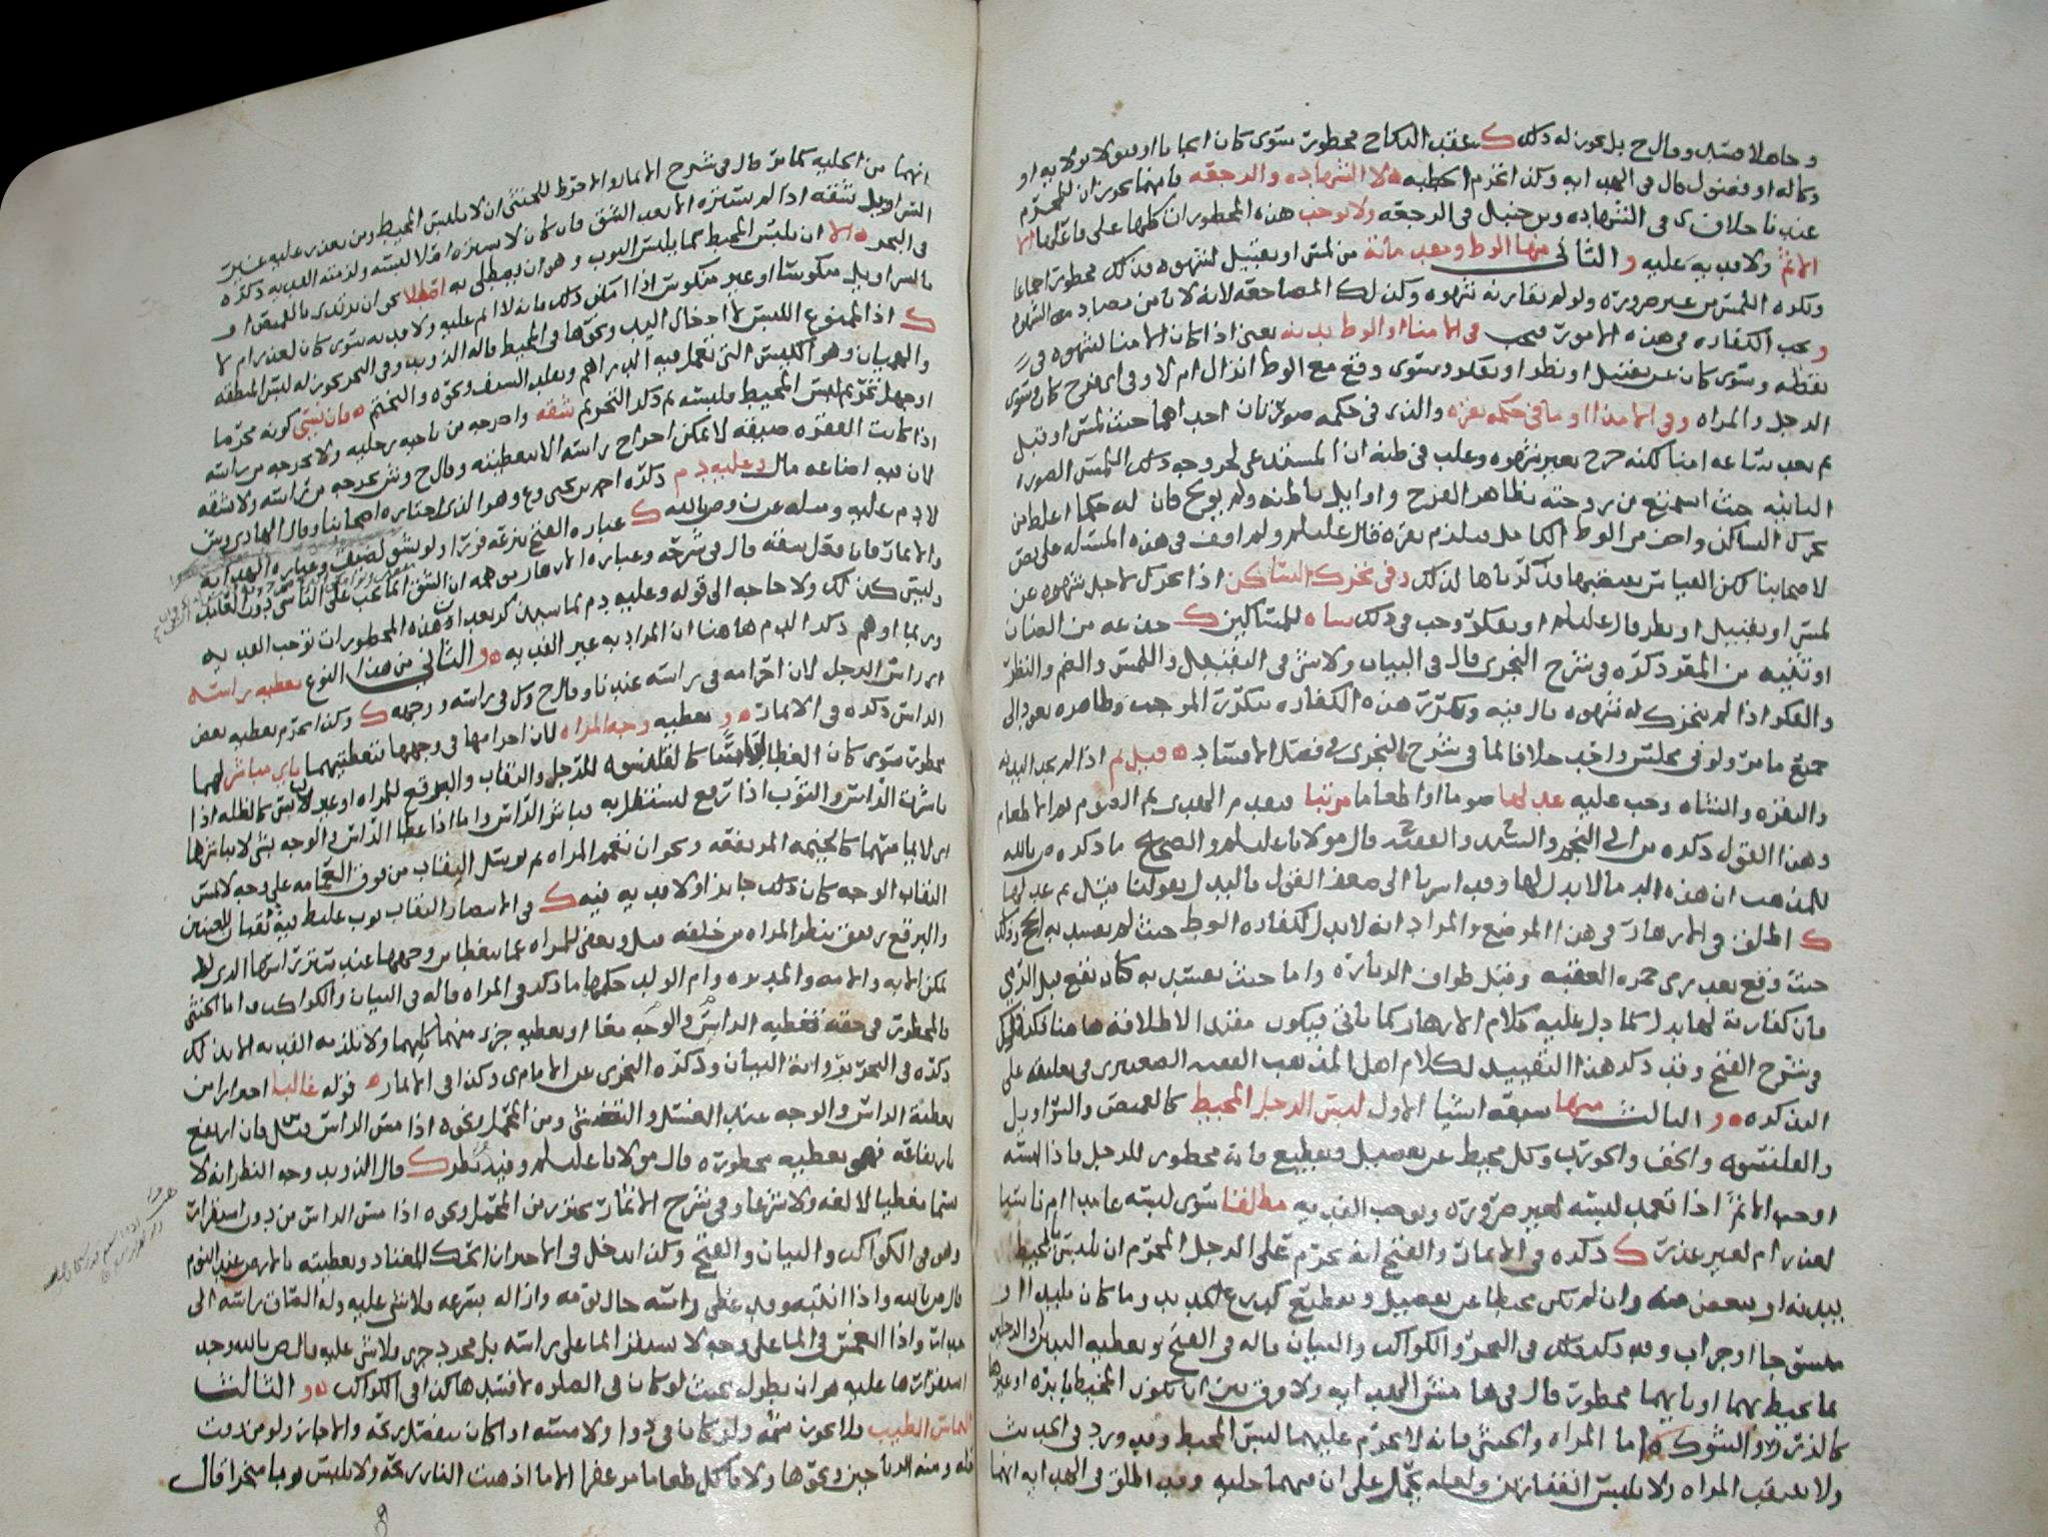 وجاهلا قيل وقال ح بل يجوز له ذلك ك عقد النكاح محظور سوى كان ايجابا او قبولا بولاية او
وكالة او فضول قال في الهداية وكذا تحرم الخطبة ه لا الشهاده والرجعه فانهما يجوزان للمحرم
عندنا خلاف ى في الشهاده وبن حنبل في الرجعه ولا توجب هذه المحظورات كلها على فاعلها الا
الاثم ولا فديه عليه و الثاني منها الوطء ومقدماته من لمس او تقبيل لشهوه فذلك محظور اجماعا
وتكره اللمس من غير ضروره ولو لم تقارنه شهوه وكذلك المضاجعه لانه لا يامن مصادمه الشهوه
و يجب الكفاره في هذه الامور فيجب في الامنا او الوطء بدنه يعني اذا كان الامنا لشهوه في
يقظه وسوى كان عن تقبيل او نظر او تفكر وسوى وقع مع الوطء انزال ام لا وفي اي فرج كان وسوى
الرجل والمراه وفي الامذا او ما في حكمه بقره والذي في حكمه صورتان احداهما حيث لمس او قبل
ثم بعد ساعه امنا لكنه خرج بغير شهوه وغلب في ظنه ان المستدعي لخروجه ذلك اللمس الصوره
الثانيه حيث استمتع من زوجته بظاهر الفرج واوايل باطنه ولم يولج فان له حكما اغلظ من
تحرك الساكن واخف من الوطء الكامل فيلزم بقره قال عليلم ولم اقف في هذه المسئله على نص
لاصحابنا لكن القياس يقتضيها فذكرناها لذلك وفي تحرك الساكن اذا تحرك لاجل شهوه عن
لمس او تقبيل او نظر قال عليلم او تفكر وجب في ذلك شاه للمساكين ك جذعه من الضان
او ثنيه من المعز ذكره في شرح النجري قال في البيان ولا شي في التقبيل واللمس والضم والنظر
والفكر اذا لم يتحرك له شهوه قال فيه وتكرر هذه الكفاره بتكرر الموجب وظاهره يعود الى
جميع ما مر ولو في مجلس واحد خلافا لما في شرح النجري في فصل الافساد ه قيل ثم اذا لم يجد البدنه
والبقره والشاه وجب عليه عدلها صوما او اطعاما مرتبا فيقدم الهدي ثم الصوم ثم الاطعام
وهذا القول ذكره بن ابي النجم والسيد والفقيه قال مولانا عليلم والصحيح ما ذكره ص بالله
للمذهب ان هذه الدما لا بدل لها وقد اشرنا الى ضعف القول بالبدل بقولنا قيل ثم عدلها
ك اطلق في الازهار في هذا الموضع والمراد انه لا بدل لكفاره الوطء حيث لم يفسد به الحج وذلك
حيث وقع بعد رمي جمره العقبه وقبل طواف الزياره واما حيث يفسد به كان يقع قبل الرمي
فان كفارته لها بدل كما دل عليه كلام الازهار كما ياتي فيكون مقيدا لاطلاقه هاهنا
في شرح الفتح وقد ذكر هذا التقييد لكلام اهل المذهب الفقيه الصعيتري في تعليقه على
التذكره ه و الثالث منها سبعه اشيا الاول لبس الرجل المخيط كالقميص والسراويل
والقلنسوه والخف والجورب وكل مخيط عن تفصيل وتقطيع فانه محظور للرجل فاذا لبسه
اوجب الاثم اذا تعمد لبسه لغير ضروره وتوجب الفديه مطلقا سوى لبسه عامدا ام ناسيا
لعذر ام لغير عذر ك ذكره في الاثمار والفتح انه يحرم على الرجل المحرم ان يلبس المحيط
ببدنه او ببعض منه وان لم يكن مخيطا عن تفصيل وتقطيع كدرع الحديد وما كان ملبدا او
منسوجا او جراب وقد ذكر ذلك في البحر والكواكب والبيان قاله في الفتح وتغطيه اليدين او الرجلين
بما يحيط بهما او بايهما محظور قال في هامش الهدايه ولا فرق بين ان يكون الخيط بابره او غيرها
كالذرز والشوك ه اما المراه والخنثى فانه لا يحرم عليهما لبس المخيط وقد ورد في الحديث
ولا تنتقب المراه ولا تلبس القفازين ولعله يحمل على ان فيهما حليه وقد اطلق في الهدايه انهما
انهما من الحليه كما مر قال في شرح الاثمار والاحوط للخنثى ان لا يلبس المخيط ومن تعذر عليه غير
السراويل شقه اذا لم يستتره الا بعد الشق فان كان لا يستره اصلا لبسه ولزمته الفديه ذكره
في البحر ه الا ان يلبس المخيط كما يلبس الثوب وهو ان يصطلى به اصطلا نحو ان يرتدي بالقميص او
بالسراويل منكوسا او غير منكوس اذا امكن ذلك فانه لا اثم عليه ولا فديه سوى كان لعذر ام لا
ك اذ الممنوع اللبس لا ادخال اليد ونحوها في المخيط قاله الذويد وفي البحر يجوز له لبس المنطقه
والهميان وهو الكيس التي تجعل فيه الدراهم وتقليد السيف ونحوه والتختم ه فان نسي كونه محرما
او جهل تحريم لبس المخيط فلبسه ثم ذكر التحريم شقه واخرجه من ناحيه رجليه ولا يخرجه من راسه
اذا كانت الفقره ضيقه لا يمكن اخراج راسه الا بتغطيته وقال ح وش يخرجه من راسه ولا يشقه
لان فيه اضاعه مال وعليه دم ذكره احمد بن يحيى وع وهو الذي اختاره اصحابنا وقال الهادي وش
لا دم عليه ومثله عن ن وص بالله ك عباره الفتح نزعه فورا ولو بشق لضيق وعباره الهدايه
والاثمار فان فعل شقه قال في شرحه وعباره الازهار موهمه ان الشق انما يجب على الناسي دون العامد
وليس كذلك ولا حاجه الى قوله وعليه دم لما سيذكر بعد ان هذه المحظورات توجب الفديه
وربما اوهم ذكر الدم هاهنا ان المراد به غير الفديه ه و الثاني من هذا النوع تغطيه راسه
اي راس الرجل لان احرامه في راسه عندنا وقال ح وك في راسه ووجهه ك وكذا تحرم تغطيه بعض
الراس ذكره في الاثمار ه و تغطيه وجه المراه لان احرامها في وجهها فتغطيتهما باي مباشر لهما
محظور سوى كان الغطا لباسا كالقلنسوه للرجل والنقاب والبرقع للمراه او غير لباس كالظله اذا
باشرت الراس والثوب اذا رفع ليستظل به فباشر الراس واما اذا غطا الراس والوجه بشي لا يباشرهما
اي لا يماسهما كالخيمه المرتفعه ونحو ان تعمم المراه ثم ترسل النقاب من فوق العمامه على وجه لا يمس
النقاب الوجه كان ذلك جايز او لا فديه فيه ك في الانتصار النقاب ثوب غليظ فيه نقبان للعينين
والبرقع رقيق تنظر المراه من خلفه قيل ويعفى للمراه عما يغطا من وجهها عند ستر راسها الذي لا
يمكن الا به والامه والمدبره وام الولد حكمها ما ذكر في المراه قاله في البيان والكواكب واما الخنثى
فالمحظور في حقه تغطيه الراس والوجه معا او تغطيه جزء منهما كليهما ولا تلزمه الفديه الا بذلك
ذكره في البحر ورواية البيان وذكره النجري عن الامام ى وكذا في الاثمار ه قوله غالبا احترازا من
تغطية الراس والوجه عند الغسل والتغشي ومن المحمل ونحوه اذا مس الراس قيل فان ارتفع
بارتفاعه فهو تغطيه محظوره قال مولانا عليلم وفيه نظر ك قال الذويد وجه النظر انه لا
يسما تغطيا لا لغه ولا شرعا وفي شرح الاثمار تحترز من المحمل ونحوه اذا مس الراس من دون استقرار
وهو في الكواكب والبيان والفتح وكذا ادخل في الاحتراز الحك المعتاد وتغطيته بالارض عند النوم
قال ص بالله واذا انتبه وقد غطى راسه حال نومه وازاله بسرعه فلا شي عليه وله الصاق راسه الى
جدار واذا انغمس في الما على وجه لا يستقر الما على راسه بل مجرد جري فلا شي عليه قال ص بالله وحد
استقراره عليه هو ان يطول بحيث لو كان في الصلوه لافسدها كذا في الكواكب ه و الثالث
التماس الطيب فلا يجوز شمه ولو كان في دوا ولا مسه اذا كان ينفصل ريحه والا جاز ولو من دون
فله ومنه الرياحين ونحوها ولا ياكل طعاما مزعفرا الا ما اذهبت النار ريحه ولا يلبس ثوبا مبخرا قال